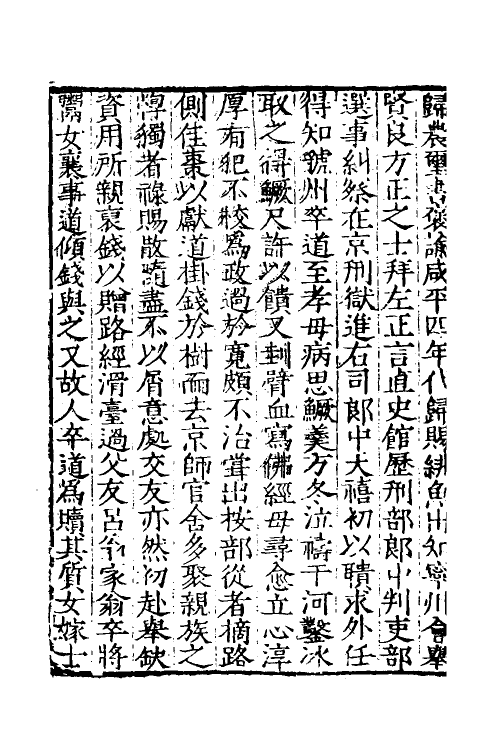 歸農璽書褒諭咸平四年代歸賜緋魚出知寧州會舉
賢良方正之士拜左正言直史館歷刑部郎中判吏部
選事糾察在京刑獄進右司郎中天禧初以聵求外任
得知虢州卒道至孝母病思鱖羹方冬泣禱于河鑿冰
取之得鱖尺許以饋又刲臂血寫佛經母尋愈立心淳
厚有犯不校為政過於寬頗不治甞出按部從者摘路
側佳棗以獻道掛錢於樹而去京師官舍多聚親族之
惸獨者祿賜散隨盡不以屑意處交友亦然初赴舉缺
資用所親裒錢以贈路經滑臺過父友呂翁家翁卒將
鬻女襄事道傾錢與之又故人卒道為贖其質女嫁士